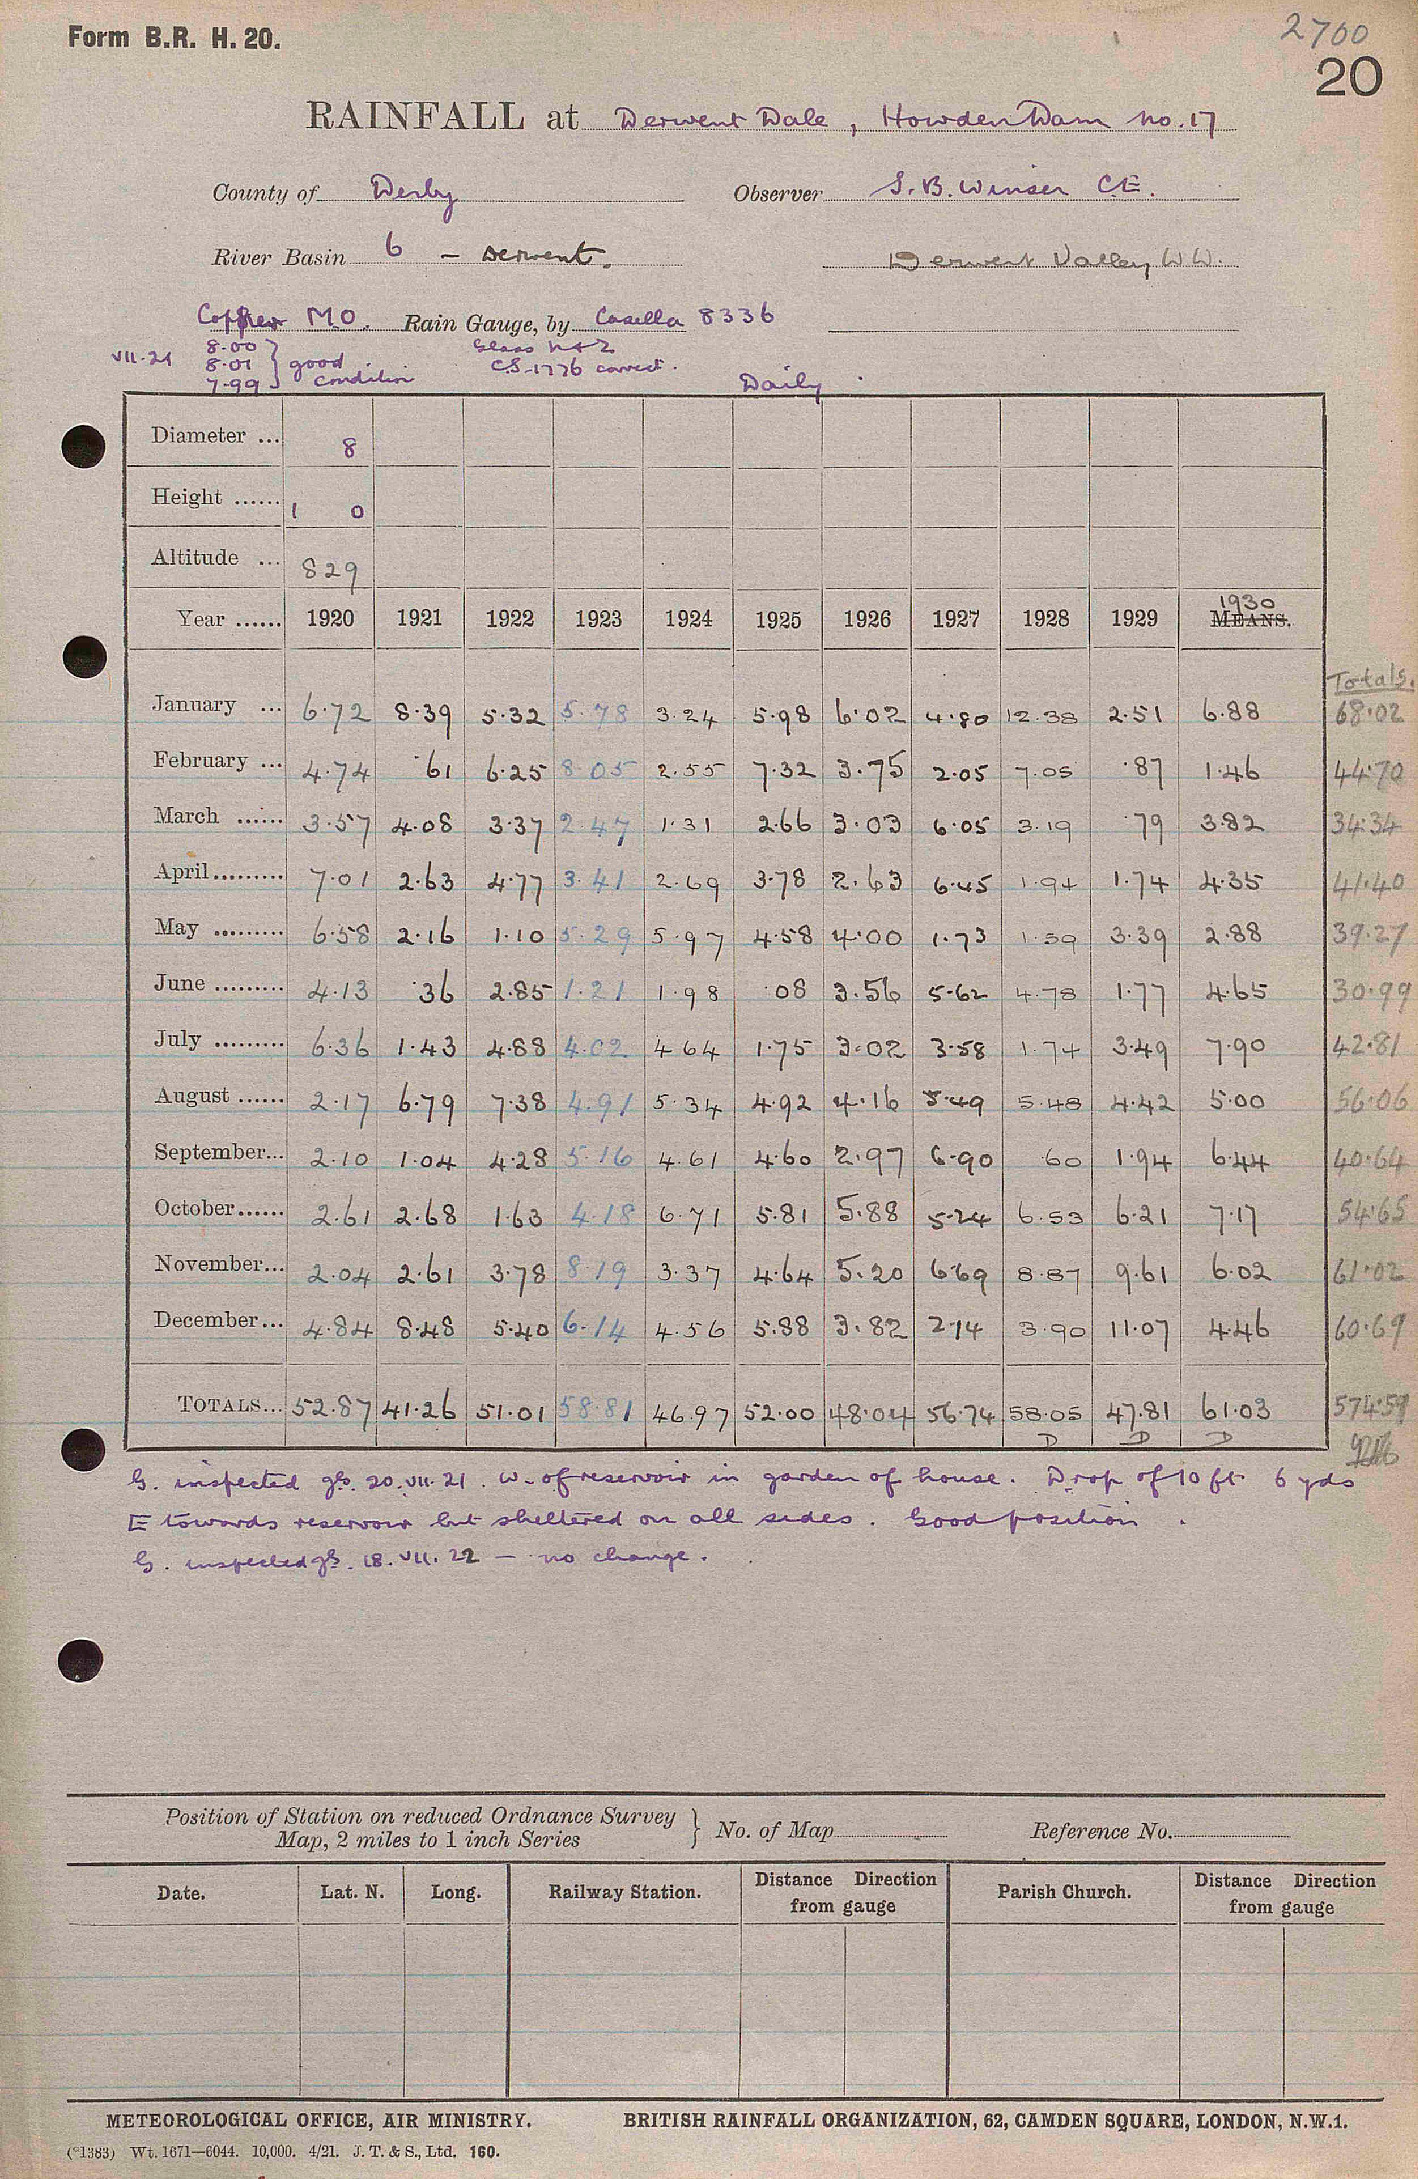 Form B.R. H. 20.
2700
20
RAINFALL at Derwent Dale, Howden Dam No. 17
County of Derby Observer S. B. Winser C.E.
River Basin 6 – Derwent. Derwent Valley W W.
Copper M.O. Rain Gauge, by Casella 8336
VII.21 8.00 8.01 7.99 } good condition
Glass
CS 1776 correct.
Daily
Diameter ... 8
Height ...... 1 0
Altitude ... 829
Year ...... 1920 1921 1922 1923 1924 1925 1926 1927 1928 1929 1930 MEANS.
Totals.
January ... 6.72 8.39 5.32 5.78 3.24 5.98 6.02 4.80 12.38 2.51 6.88 68.02
February ... 4.74 .61 6.25 8.05 2.55 7.32 3.75 2.05 7.05 .87 1.46 44.70
March ...... 3.57 4.08 3.37 2.47 1.31 2.66 3.03 6.05 3.19 .79 3.82 34.34
April ......... 7.01 2.63 4.77 3.41 2.69 3.78 2.63 6.45 1.94 1.74 4.35 41.40
May ......... 6.58 2.16 1.10 5.29 5.97 4.58 4.00 1.73 1.59 3.39 2.88 39.27
June ......... 4.13 .36 2.85 1.21 1.98 .08 3.56 5.62 4.78 1.77 4.65 30.99
July ......... 6.36 1.43 4.88 4.02 4.64 1.75 3.02 3.58 1.74 3.49 7.90 42.81
August ...... 2.17 6.79 7.38 4.91 5.34 4.92 4.16 5.49 5.48 4.42 5.00 56.06
September... 2.10 1.04 4.28 5.16 4.61 4.60 2.97 6.90 .60 1.94 6.44 40.64
October...... 2.61 2.68 1.63 4.18 6.71 5.81 5.88 5.24 6.53 6.21 7.17 54.65
November... 2.04 2.61 3.78 8.19 3.37 4.64 5.20 6.69 8.87 9.61 6.02 61.02
December... 4.84 8.48 5.40 6.14 4.56 5.88 3.82 2.14 3.90 11.07 4.46 60.69
TOTALS... 52.87 41.26 51.01 58.81 46.97 52.00 48.04 56.74 58.05 47.81 61.03 574.59
D D D
G. inspected gb. 20.VII.21. W. of reservoir in garden of house. Drop of 10 ft 6 yds
E towards reservoir but sheltered on all sides. Good position.
G. inspected gb. 18.VII.22 – no change.
Position of Station on reduced Ordnance Survey Map, 2 miles to 1 inch Series } No. of Map Reference No.
Date. Lat. N. Long. Railway Station. Distance Direction from gauge Parish Church. Distance Direction from gauge
METEOROLOGICAL OFFICE, AIR MINISTRY. BRITISH RAINFALL ORGANIZATION, 62, CAMDEN SQUARE, LONDON, N.W.1.
(*1383) Wt. 1671—6044. 10,000. 4/21. J. T. & S., Ltd. 160.